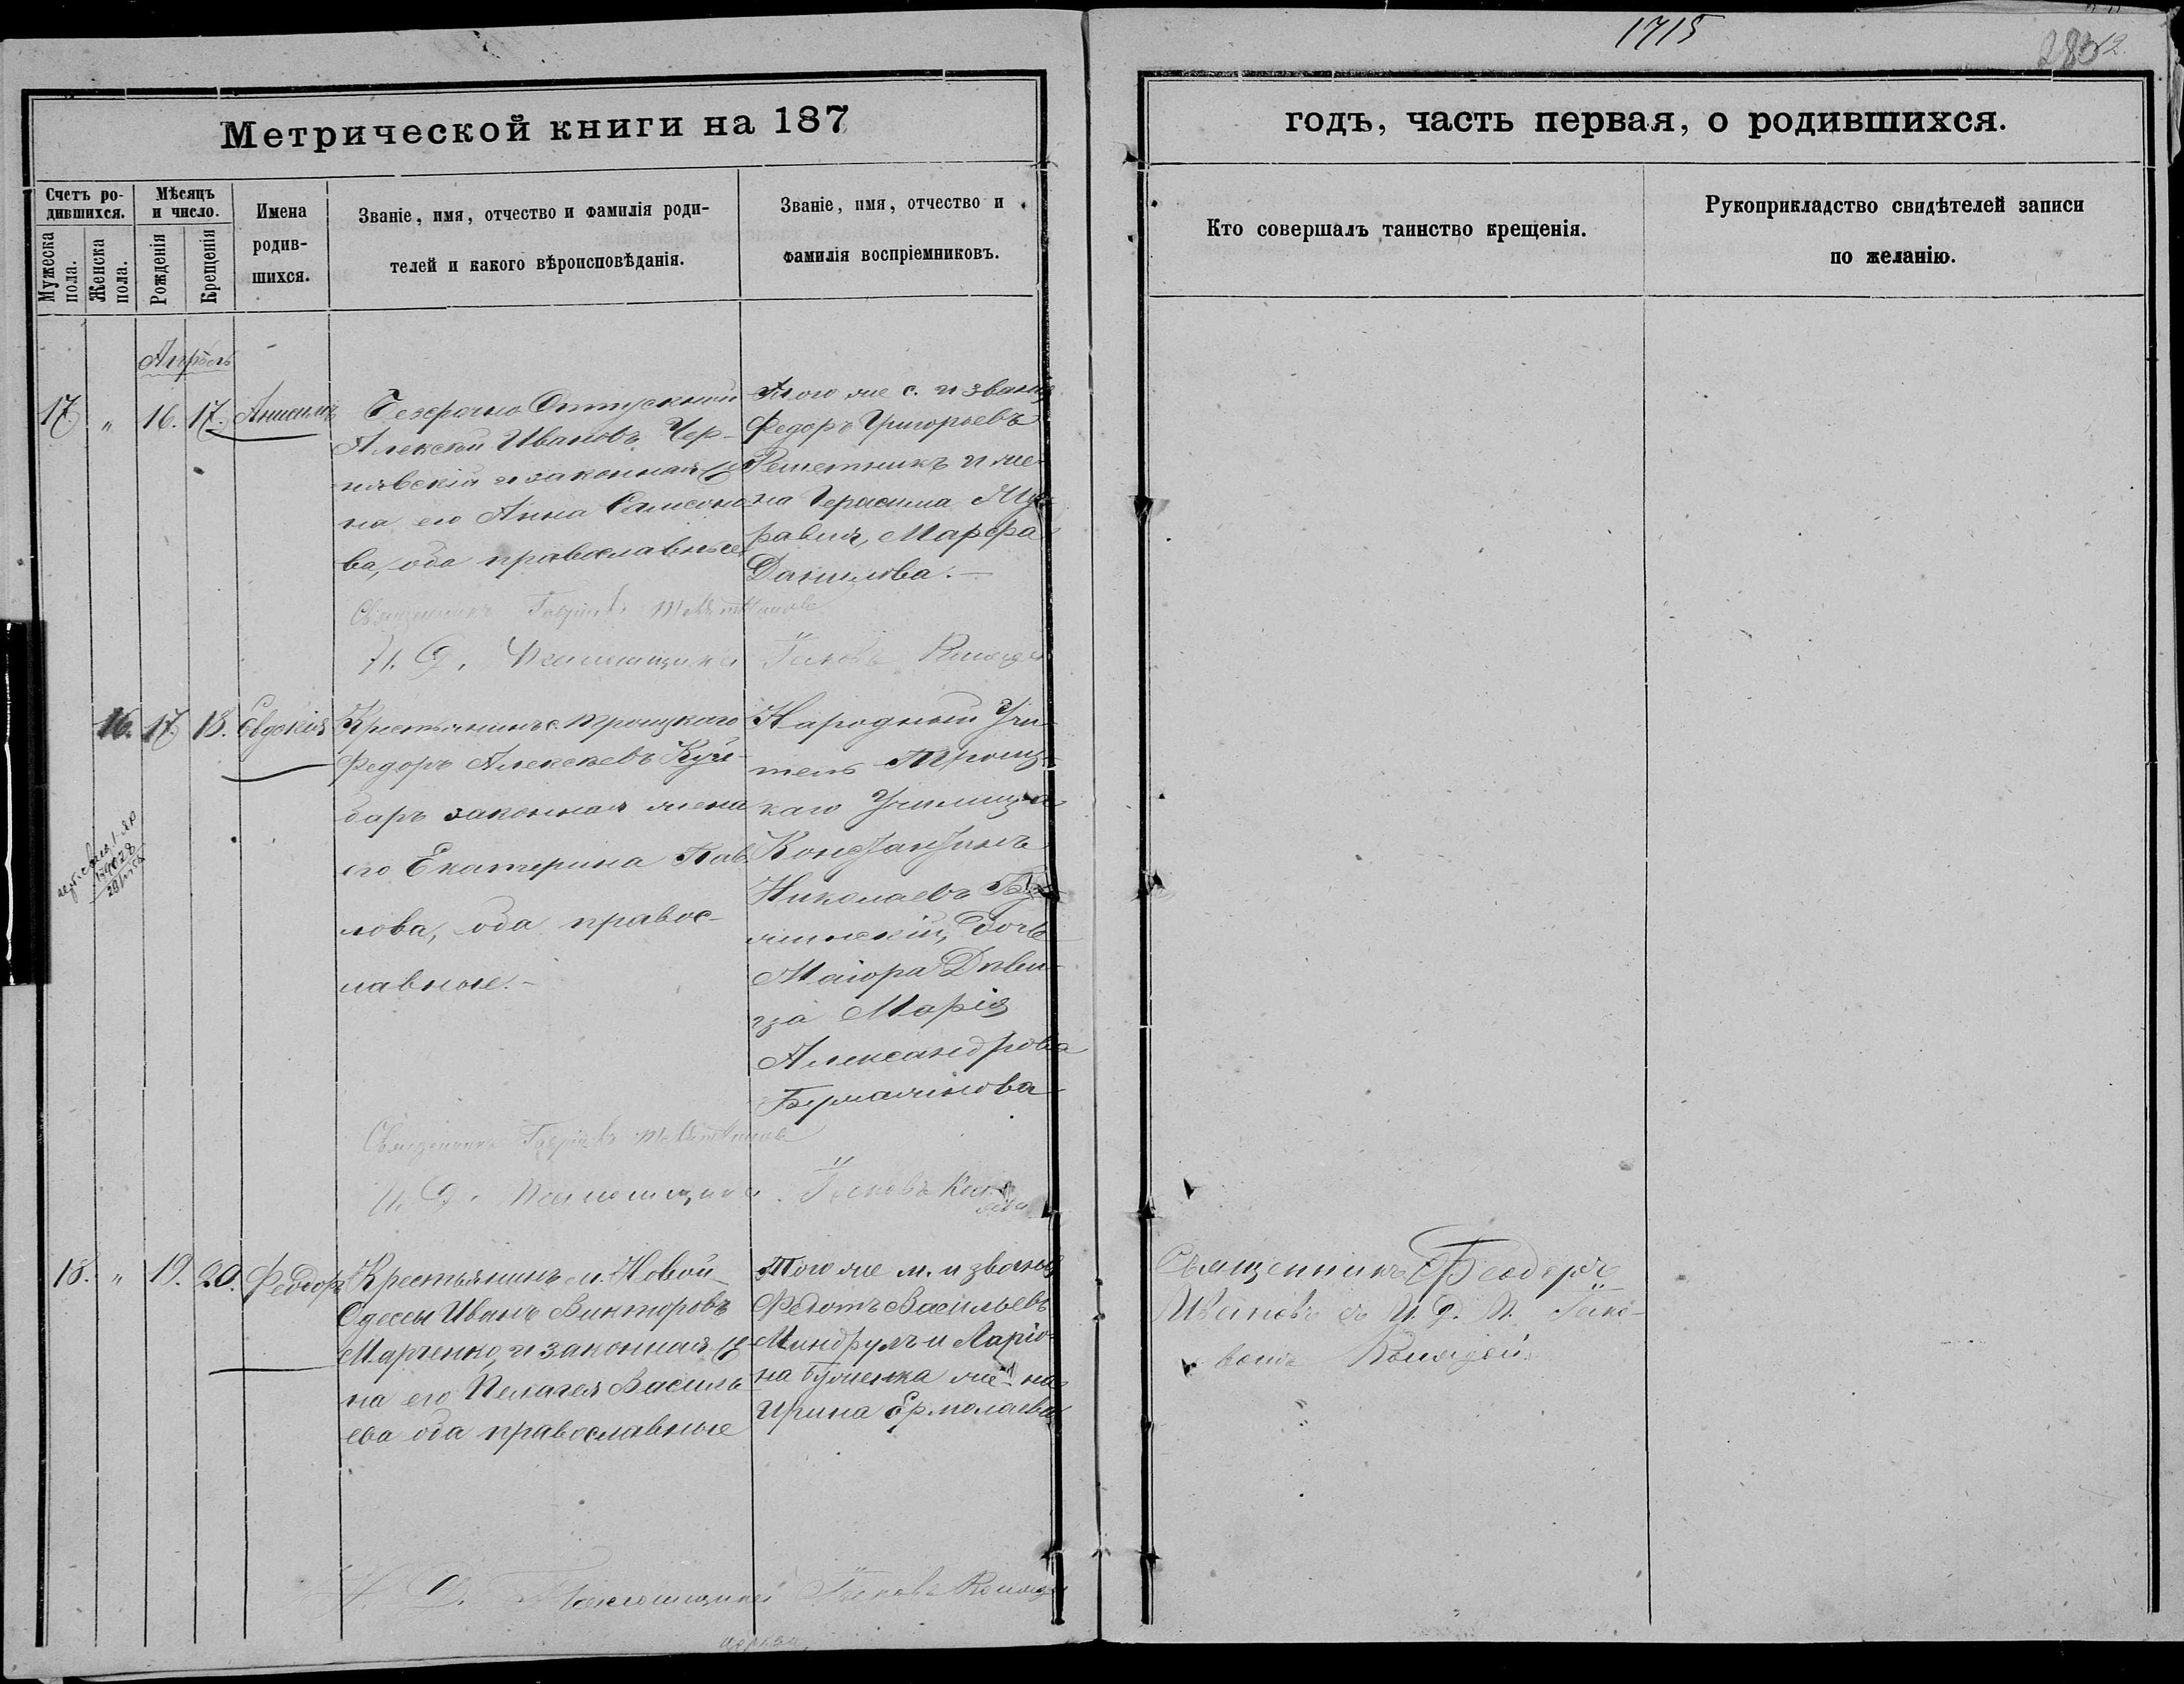 1715
283
12.
Метрической книги на 187
годъ, часть первая, о родившихся.
Счетъ родившихся.
Мѣсяцъ и число.
Мужеска пола.
Женска пола.
Рожденія
Крещенія
Имена родившихся.
Званіе, имя, отчество и фамилія роди-
телей и какого вѣроисповѣданія.
Званіе, имя, отчество и
фамилія воспріемниковъ.
Кто совершалъ таинство крещенія.
Рукоприкладство свидѣтелей записи
по желанію.
Апрѣль
17. " 16. 17. Анисимъ
Безсрочно Отпускной
Алексѣй Ивановъ Чер-
нявскій и законная же
на его Анна Самсоно
ва, оба православные
Того же с. и званія
Федоръ Григорьевъ
Решетникъ и же
на Герасима Му
равия, Марфа
Данилова.
Священникъ Гавріилъ
И. Д. Псаломщика Іаковъ
16. 17. 18. Евдокія
Крестьянинъ с. Троицкаго
Федоръ Алексѣевъ Кул-
баръ законная жена
его Екатерина Пав
лова, оба правос-
лавные.
Народный Учи
тель Троиц-
каго Училища
Константинъ
Николаевъ
Дочь
Маіора Дѣви-
ца Марія
Александрова
Священникъ Гавріилъ
И. Д. Псаломщика Іаковъ
18. " 19. 20. Феодоръ
Крестьянинъ м. Новой
Одессы Иванъ Викторовъ
Марченко, и законная же
на его Пелагея Василь
ева оба православные
Того же м. и званія
Федотъ Васильевъ
Миндрулъ и Ларіо-
на жена
Ирина Ермолаева
Священникъ Феодоръ
Ивановъ съ И. Д. П. Іако-
вомъ
И. Д. Псаломщика Іаковъ